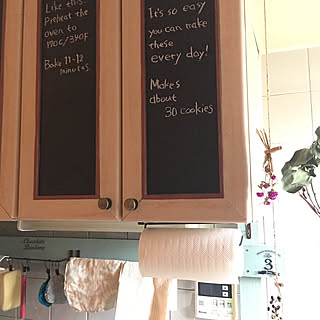 Like this.
Preheat the
oven to
170C/340F
Bake 11-12
minutes.
It's so easy
you can make
these
every day!
Makes
about
30 cookies
3